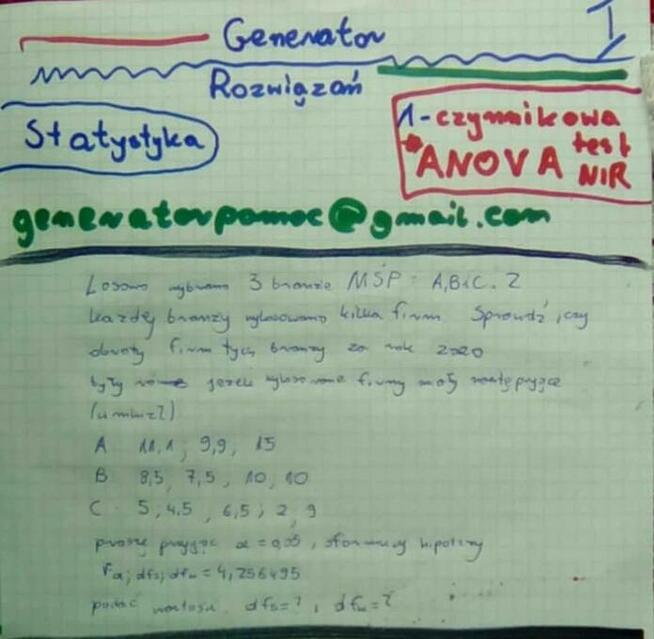 Generator I
Rozwiązań
Statystyka
1-czynnikowa
ANOVA test
NIR
generatorpomoc@gmail.com
Losowo wybrano 3 branże MŚP - A, B i C. Z
każdej branży wylosowano kilka firm. Sprawdź, czy
obroty firm tych branży za rok 2020
były równe jeżeli wylosowane firmy miały następujące
(w mln zł)
A 11,1 ; 9,9 ; 15
B 8,5 ; 7,5 , 10 , 10
C 5 ; 4,5 , 6,5 ; 2 , 9
proszę przyjąć α = 0,05 , sformułuj hipotezy
Fα; dfb; dfw = 4,256495
podać wartości dfb = ? , dfw = ?